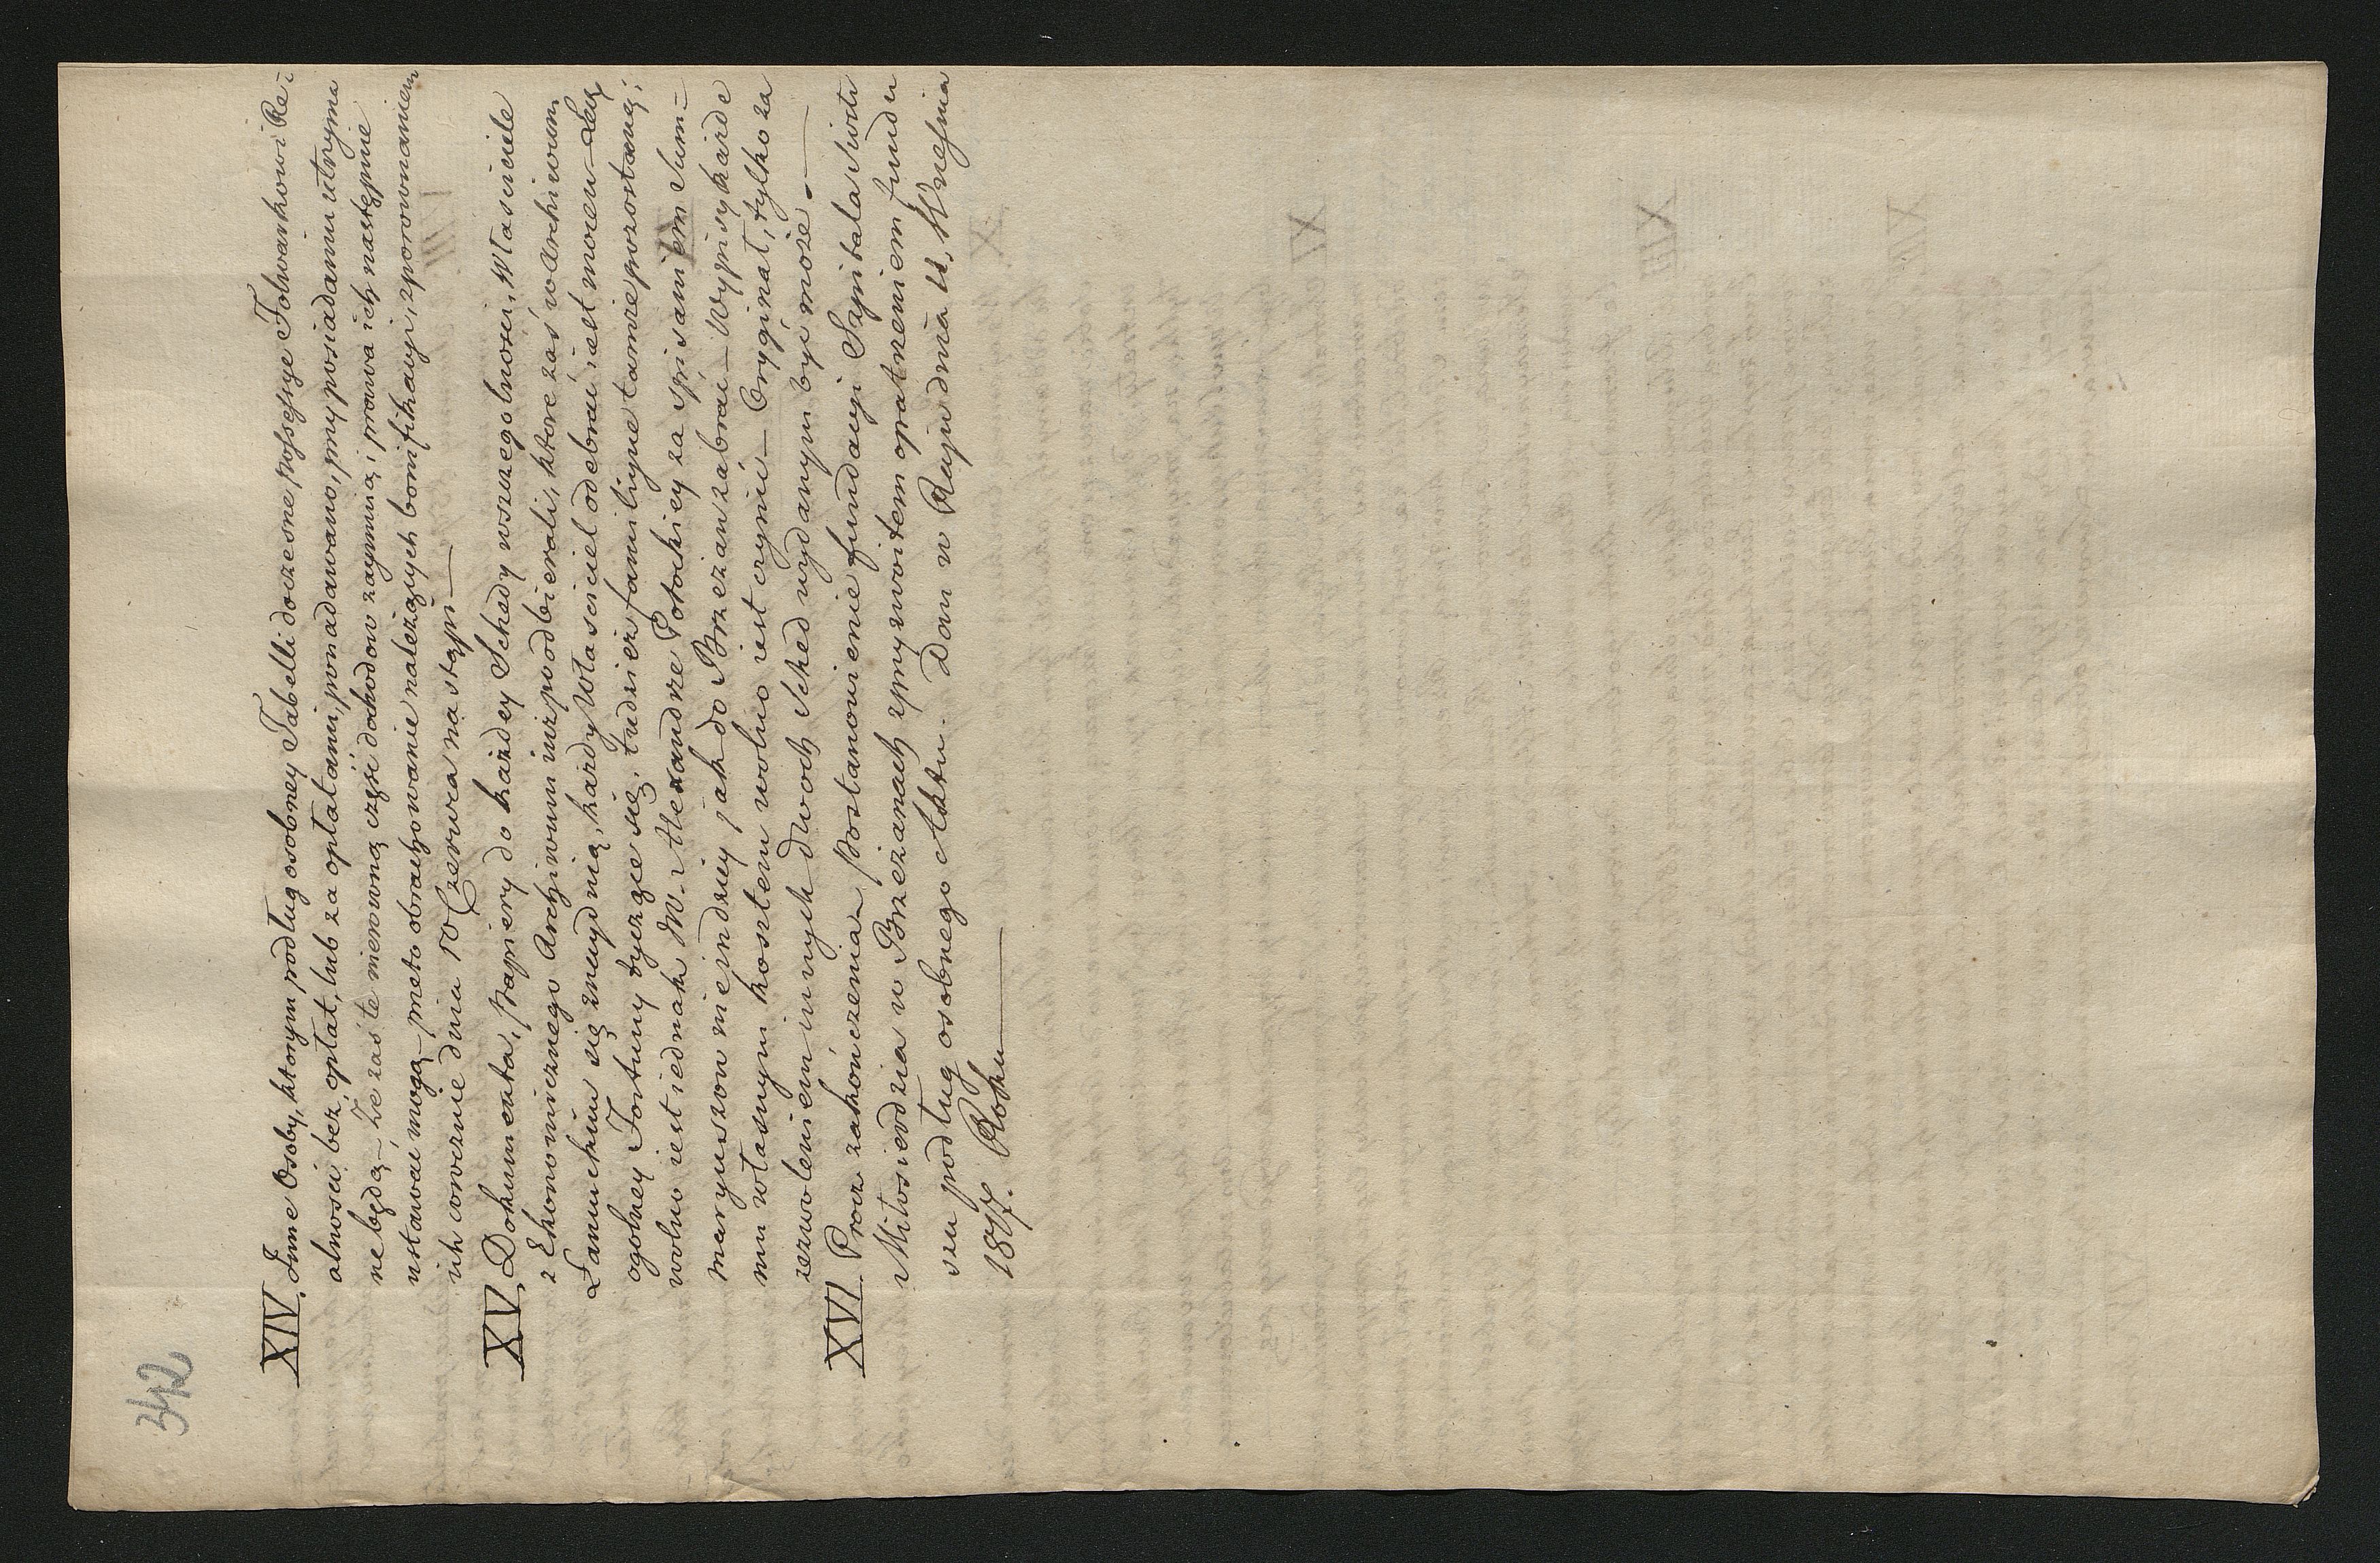 42
XIV. Inne Osoby, ktorym podług osobney Tabelli doczesne possessye Folwarkow i Re-
alnosci bez opłat, lub za opłatami, ponadawano, przy posiadaniu utrzyma
ne będą – Ze zaś te mierowną części dochodow zaymuią, i prawa ich następnie
ustawać mogą – przeto obrachowanie należących bonifikacyi, z porownaniem
ich corocznie dnia 10 Czerwca nastąpi —
XV. Dokumenta, Papiery do każdey Schedy wszczegolnosci, Własciciele
z Ekonomicznego Archiwum iuż poodbierali, ktore zaś w Archiwum
Łanuckim się znaydują, każdy Własciciel odebrać iest mocen – Lecz
ogolney Fortuny tyczące się, tudzież familiyne tamże pozostaną;
wolno iest iednak W. Alexandrze Potockiey za spisaniem Sum-
maryuszow nieindziey jak do Brzezan zabrać – Wypisy każde
mu własnym kosztem wolno iest czynić – Oryginał, tylko za
zezwoleniem innych dwoch Sched wydanym być może. —
XVI. Procz zakończenia, Postanowienie fundacyi Szpitala Siostr
Miłosierdzia w Brzeżanach z przyzwoitem opatrzeniem fundu
szu podług osobnego Aktu. Dan w Raju dnia 11. Wrzesnia
1817. Roku —